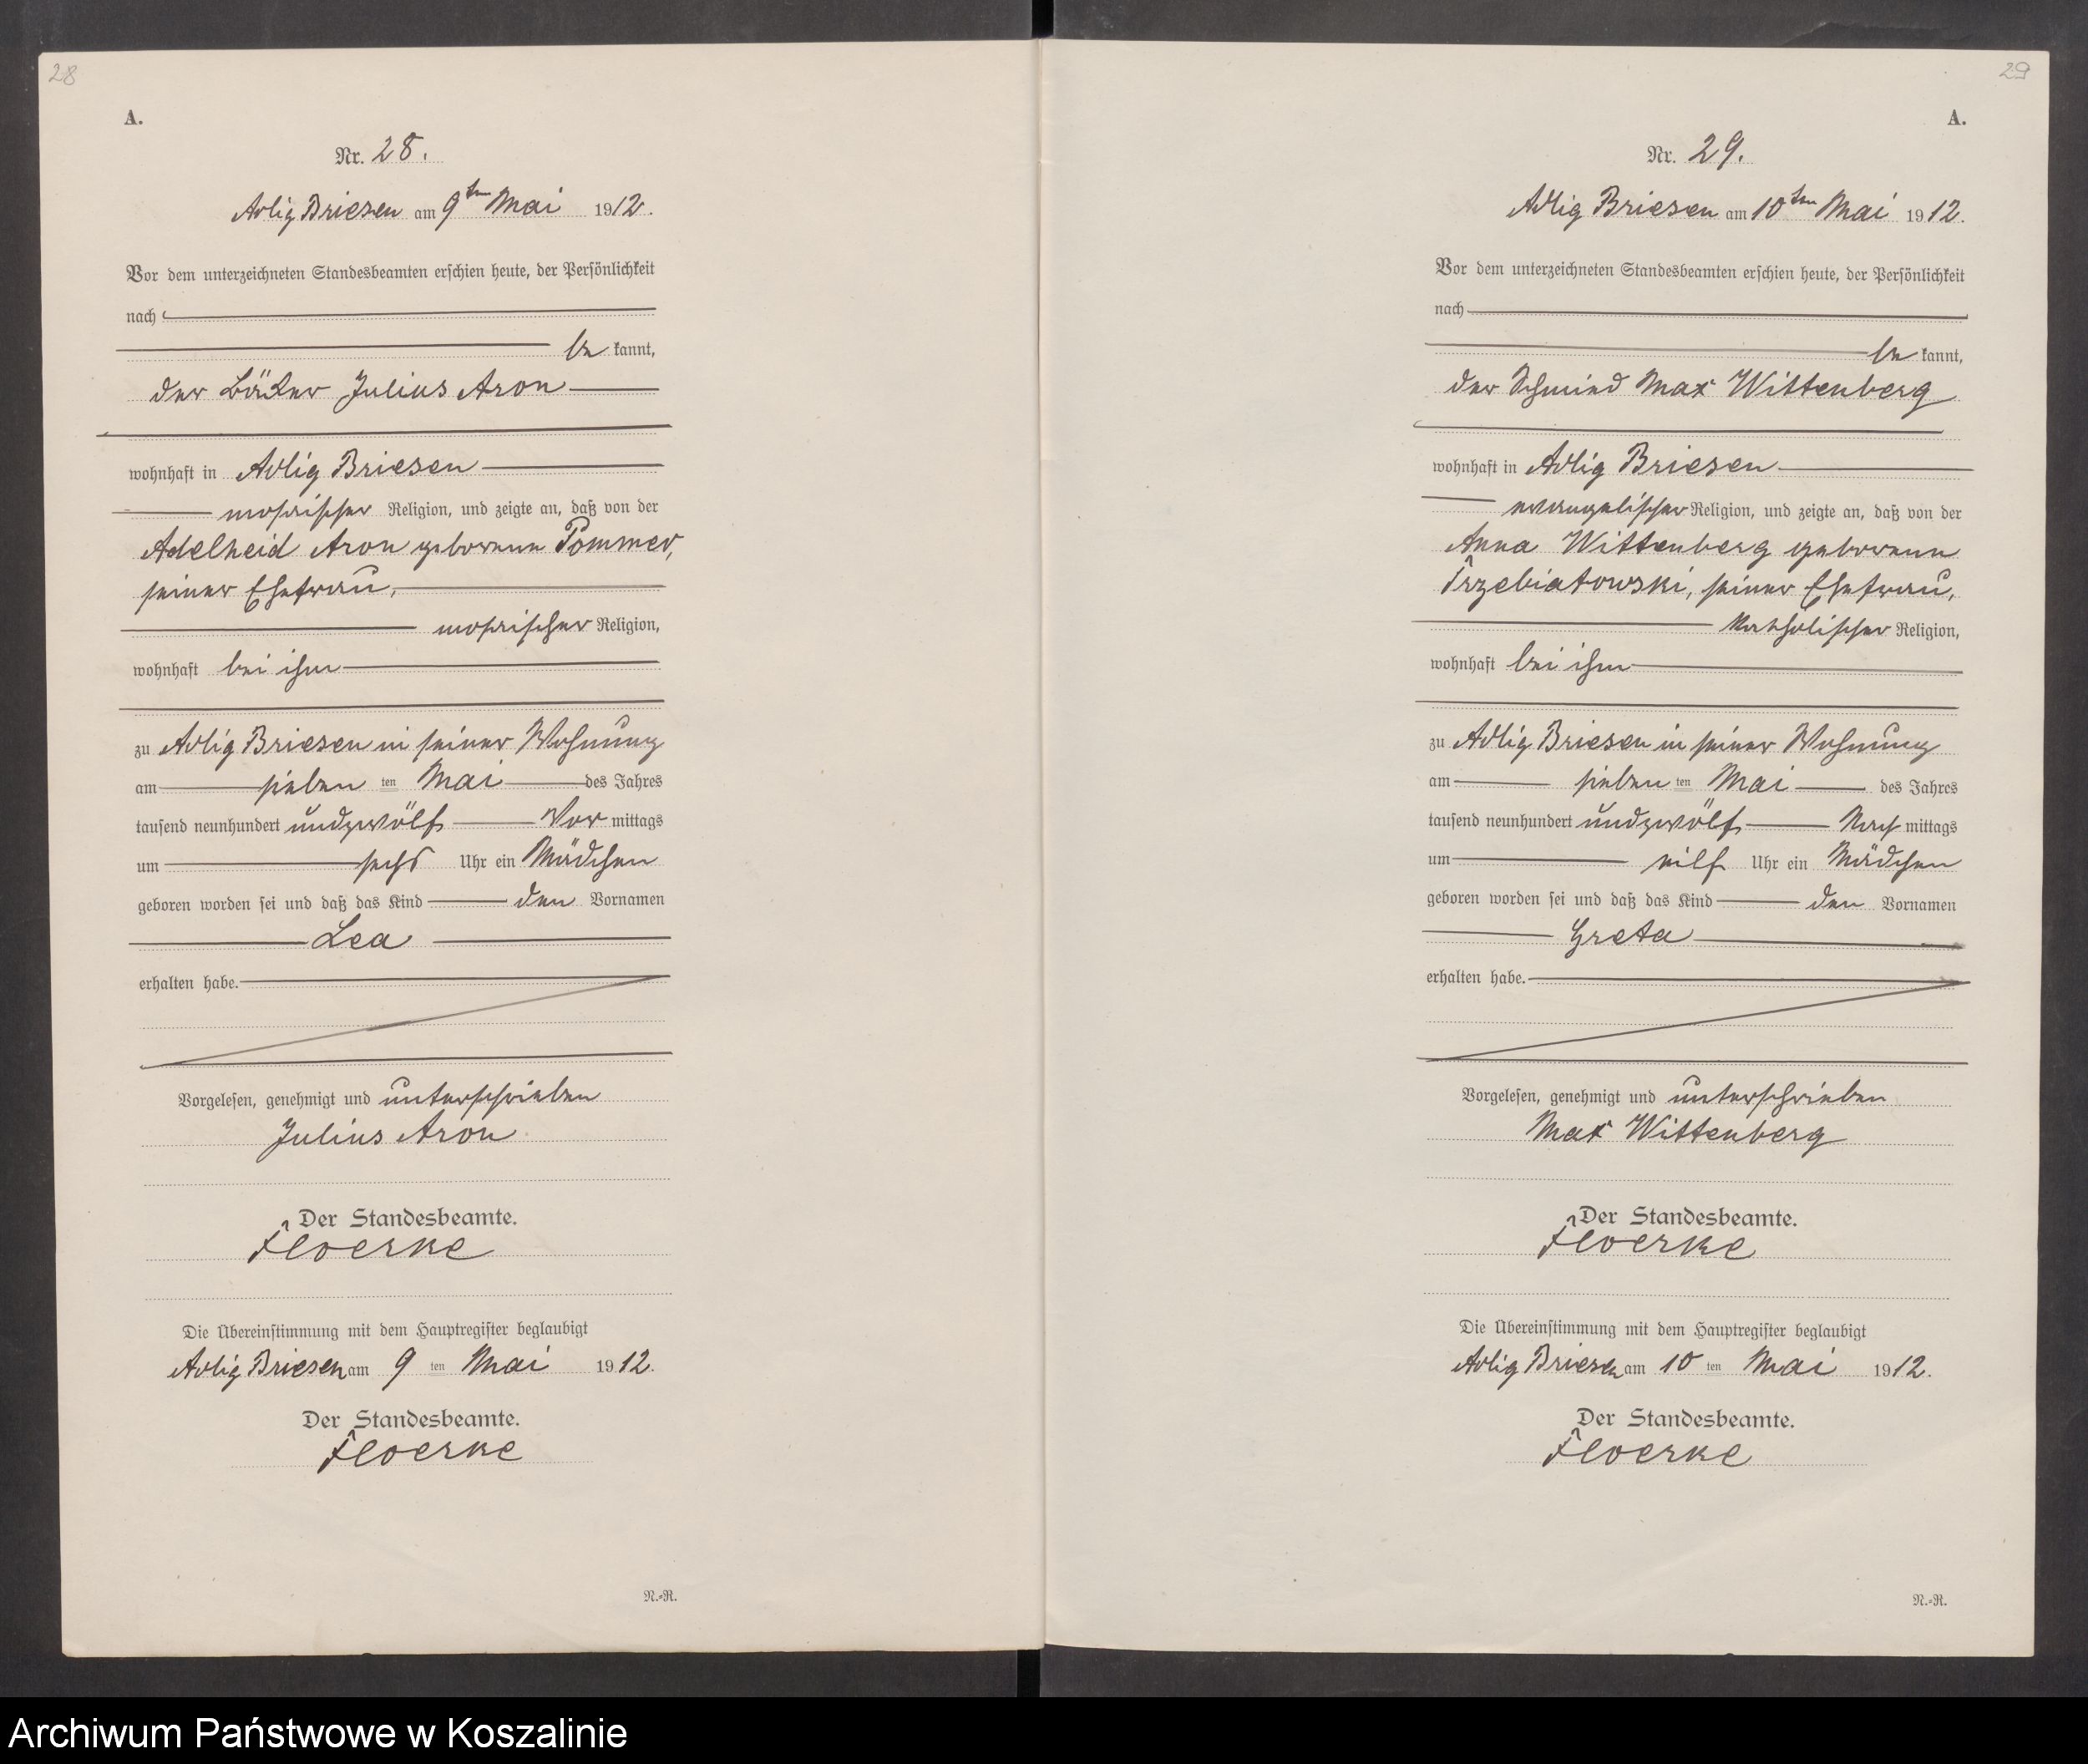 28
A.
Nr. 28.
Adlig Briesen am 9ten Mai 1912.
Vor dem unterzeichneten Standesbeamten erschien heute, der Persönlichkeit
nach
be kannt,
der Bäcker Julius Aron
wohnhaft in Adlig Briesen
mosaischer Religion, und zeigte an, daß von der
Adelheid Aron geborene Pommer,
seiner Ehefrau,
mosaischer Religion,
wohnhaft bei ihm
zu Adlig Briesen in seiner Wohnung
am sieben ten Mai des Jahres
tausend neunhundert undzwölf Vor mittags
um sechs Uhr ein Mädchen
geboren worden sei und daß das Kind den Vornamen
Lea
erhalten habe.
Vorgelesen, genehmigt und unterschrieben
Julius Aron
Der Standesbeamte.
Floerke
Die Übereinstimmung mit dem Hauptregister beglaubigt
Adlig Briesen am 9 ten Mai 1912.
Der Standesbeamte.
Floerke
N.-R.
29
A.
Nr. 29.
Adlig Briesen am 10ten Mai 1912.
Vor dem unterzeichneten Standesbeamten erschien heute, der Persönlichkeit
nach
be kannt,
der Schmied Max Wittenberg
wohnhaft in Adlig Briesen
evangelischer Religion, und zeigte an, daß von der
Anna Wittenberg geborene
Trzebiatowski, seiner Ehefrau,
katholischer Religion,
wohnhaft bei ihm
zu Adlig Briesen in seiner Wohnung
am sieben ten Mai des Jahres
tausend neunhundert undzwölf Nach mittags
um eilf Uhr ein Mädchen
geboren worden sei und daß das Kind den Vornamen
Greta
erhalten habe.
Vorgelesen, genehmigt und unterschrieben
Max Wittenberg
Der Standesbeamte.
Floerke
Die Übereinstimmung mit dem Hauptregister beglaubigt
Adlig Briesen am 10 ten Mai 1912.
Der Standesbeamte.
Floerke
N.-R.
Archiwum Państwowe w Koszalinie